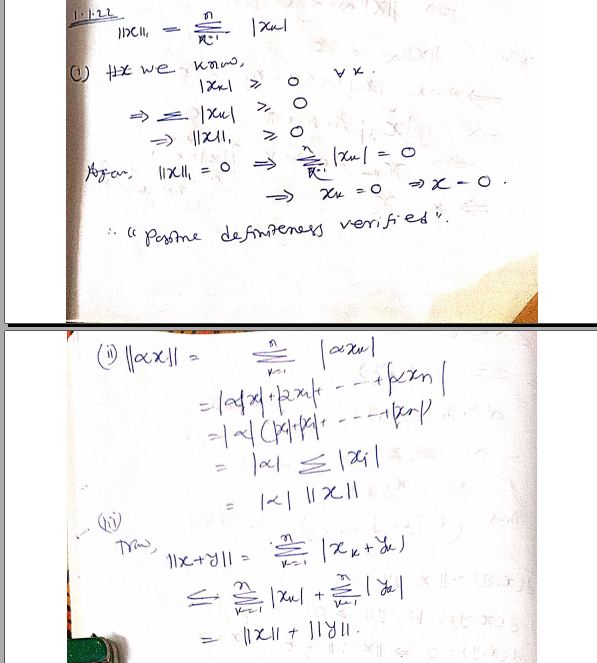 1.1.22
||x||₁ = Σ_{k=1}^{n} |xₖ|
(i) we know,
|xₖ| ≥ 0 ∀ k.
⇒ Σ |xₖ| ≥ 0
⇒ ||x||₁ ≥ 0
Again, ||x||₁ = 0 ⇒ Σ_{k=1}^{n} |xₖ| = 0
⇒ xₖ = 0 ⇒ x = 0.
∴ "Positive definiteness verified".
(ii) ||αx|| = Σ_{k=1}^{n} |αxₖ|
= |αx₁| + |αx₂| + --- + |αxₙ|
= |α| (|x₁| + |x₂| + ---- + |xₙ|)
= |α| Σ |xᵢ|
= |α| ||x||
(iii)
||x+y|| = Σ_{k=1}^{n} |xₖ + yₖ|
≤ Σ_{k=1}^{n} |xₖ| + Σ_{k=1}^{n} |yₖ|
= ||x|| + ||y||.